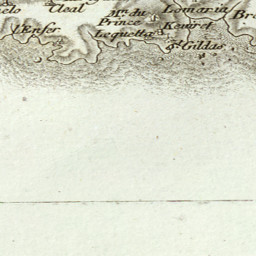 elo
Cleal
Mⁱⁿ du
Prince
Lomaria
Br
l'Enfer
Lequella
Kouret
Sᵗ Gildas